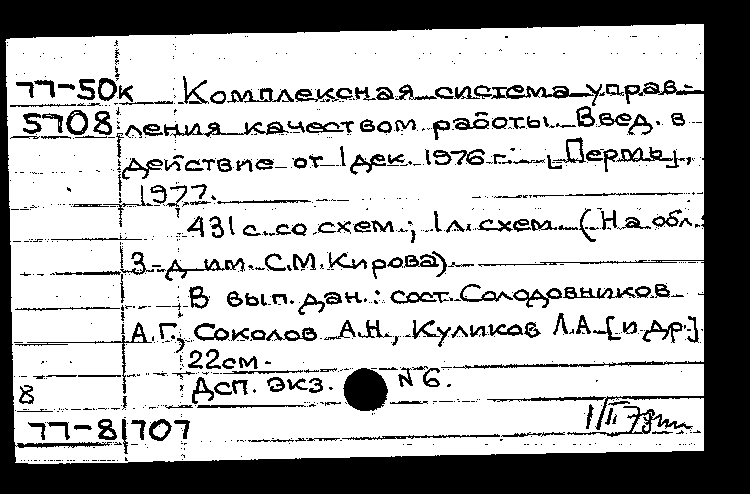 77-50к Комплексная система управ-
5708 ления качеством работы. Введ. в
действие от 1 дек. 1976 г. [Пермь],
1977.
431 с. со схем.; 1 л. схем. (На обл.:
З-д им. С.М.Кирова).
В вып. дан.: сост. Солодовников
А.Г., Соколов А.Н., Куликов Л.А. [и др.]
22 см.
Дсп. экз. N 6.
8
77-81707
1/II 78